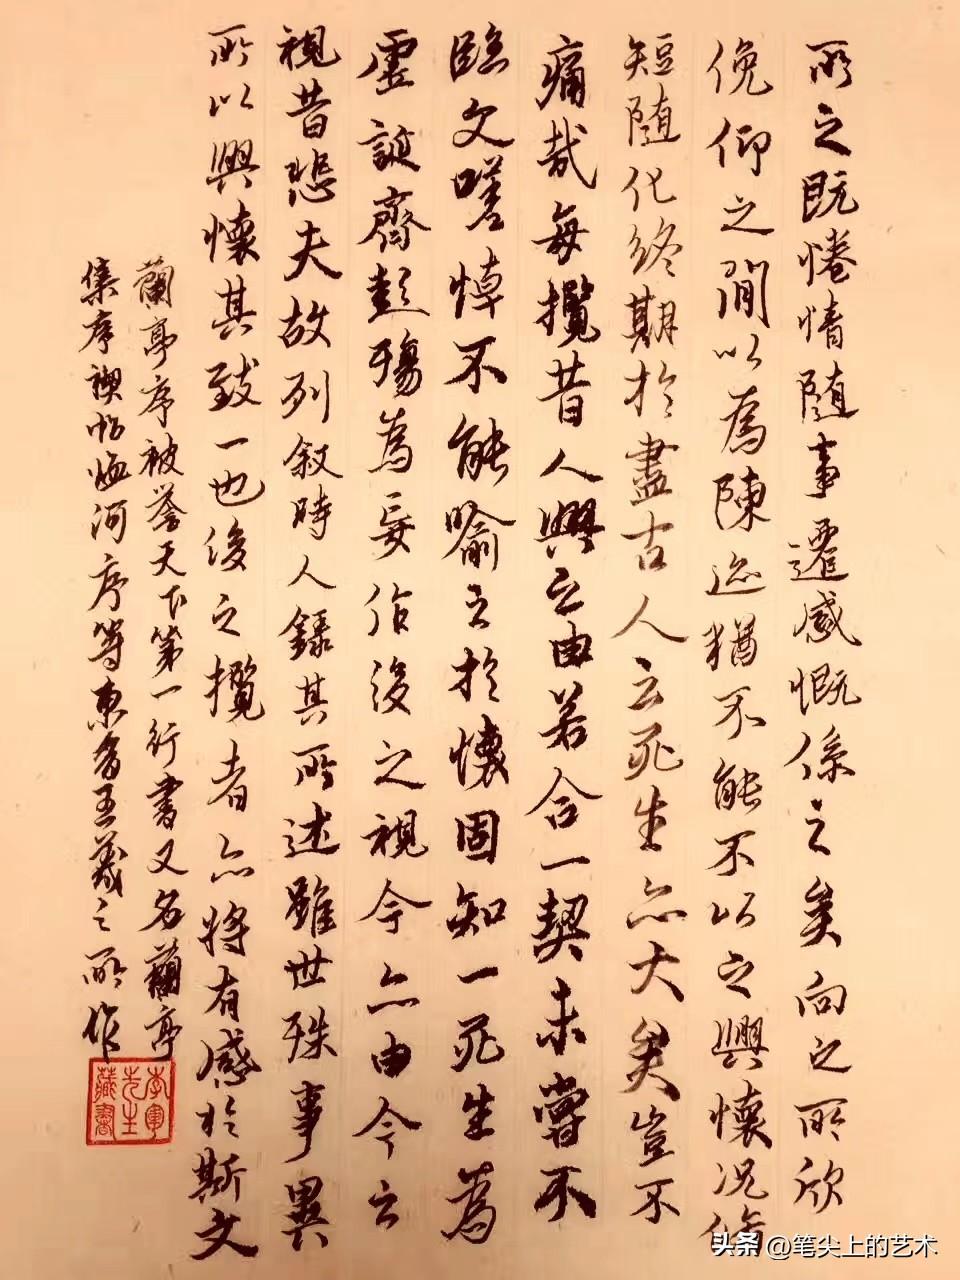 所之既惓情随事遷感慨係之矣向之所欣
俛仰之間以為陳迹猶不能不以之興懷况脩
短随化終期於盡古人云死生亦大矣豈不
痛哉每攬昔人興之由若合一契未嘗不
臨文嗟悼不能喻之於懷固知一死生為
虛誕齊彭殤為妄作後之視今亦由今之
視昔悲夫故列叙時人録其所述雖世殊事異
所以興懷其致一也後之攬者亦将有感於斯文
蘭亭序被誉天下第一行書又名蘭亭
集序禊帖临河序等東晋王羲之所作
李軍
先生
藏書
头条 @笔尖上的艺术